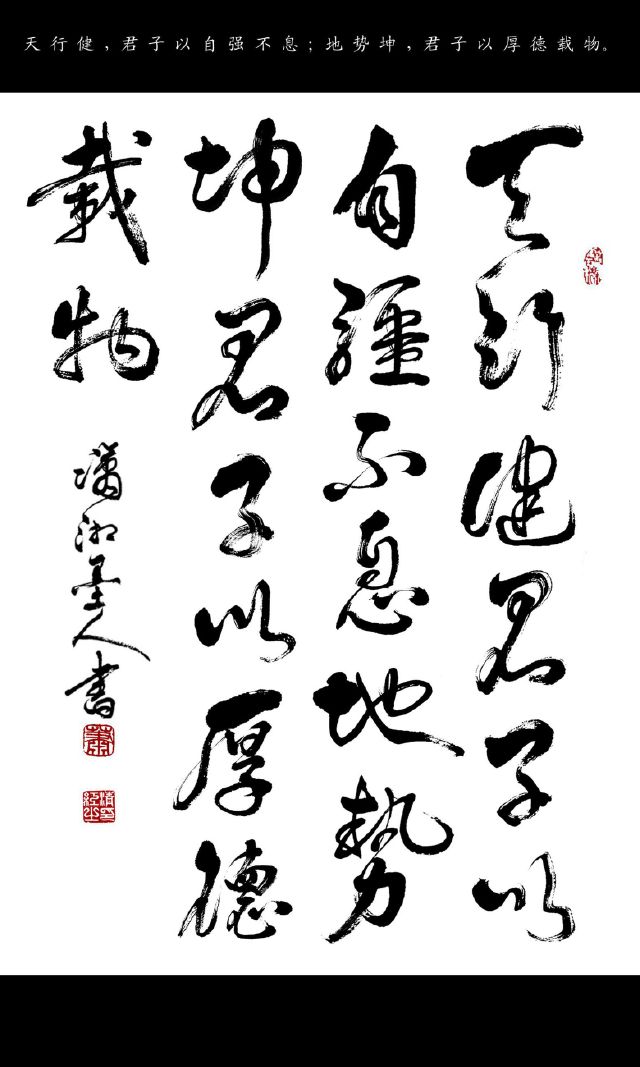 天行健，君子以自强不息；地势坤，君子以厚德载物。
天行健君子以
自彊不息地勢
坤君子以厚德
載物
瀟湘墨人書